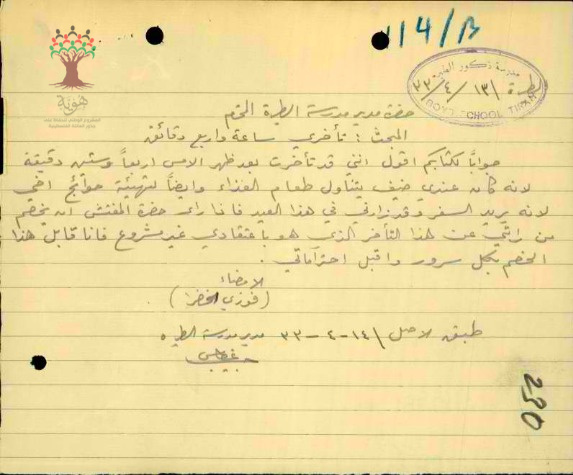 114/B
هوية
مدرسة ذكور الطيرة
الطيرة ١٣/٤/٣٣
BOYS SCHOOL TIREH
حضرة مدير مدرسة الطيرة المحترم
المبحث : تأخري ساعة واربع دقائق
جواباً لكتابكم اقول انني قد تأخرت بعد ظهر الامس اربعاً وستين دقيقة
لانه كان عندي ضيف يتناول طعام الغداء وايضاً لتهيئة حوائج اخي
لانه يريد السفر وقد زارني في هذا العيد فاذا راى حضرة المفتش ان يخصم
من راتبي عن هذا التأخر الذي هو باعتقادي غير مشروع فانا قابل هذا
الخصم بكل سرور واقبل احتراماتي .
الامضاء
(فوزي الخضر)
طبق الاصل ١٤-٤-٣٣ مدير مدرسة الطيره
230